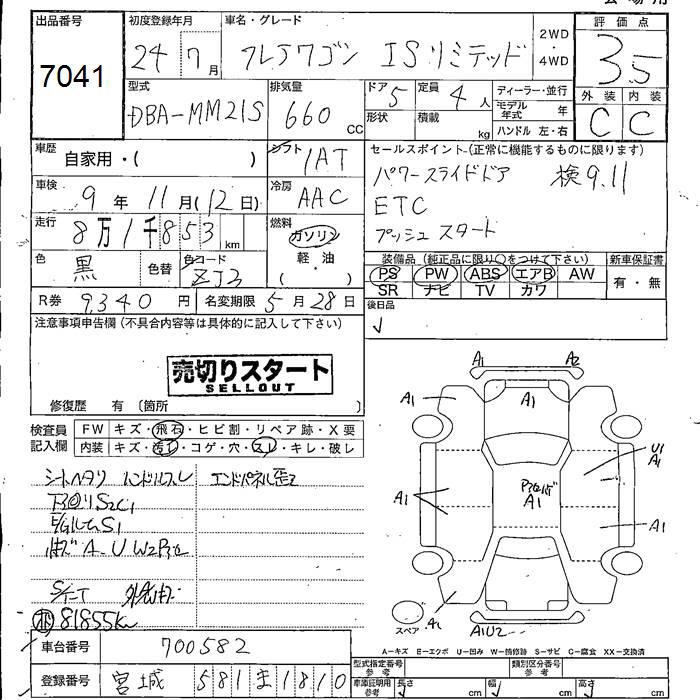 出品番号 初度登録年月 車名・グレード 2WD 評価点
7041 24 7月 フレアワゴン ISリミテッド ・4WD 3.5
型式 排気量 ドア 5 定員 4人 ディーラー・並行 外装 内装
DBA-MM21S 660cc 形状 積載 kg モデル年式 年 C C
ハンドル 左・右
車歴 自家用・( ) シフト 1AT セールスポイント (正常に機能するものに限ります)
車検 9年11月(12日) 冷房 AAC パワースライドドア 検9.11
走行 8万1千853km 燃料 ガソリン ETC
軽・油 プッシュスタート
色 黒 色替 色コード ZJ3 ( ・ ) 装備品 (純正品に限り○をつけて下さい) 新車保証書
PS PW ABS エアB AW 有・無
SR ナビ TV カワ
R券 9,340円 名変期限 5月28日 後日品
注意事項申告欄 (不具合内容等は具体的に記入して下さい)
売切りスタート
SELLOUT
修復歴 有 〔箇所 〕
検査員 FW キズ・飛石・ヒビ割・リペア跡・X要
記入欄 内装 キズ・汚レ・コゲ・穴・スレ・キレ・破レ
シートヘタリ ハンドルスレ エンドパネル歪
S2C1
S1
A-U W2
81855km
A1 A2
A1 A1 A1
U1
A1
A1 A1 A1
A1 A1U2
スペア
A-キズ E-エクボ U-凹み W-補修跡 S-サビ C-腐食 XX-交換済
車台番号 700582
型式指定番号 参考 類別区分番号 参考
登録番号 宮城 581 ま 1810
車庫証明用 参考 長さ cm 幅 cm 高さ cm